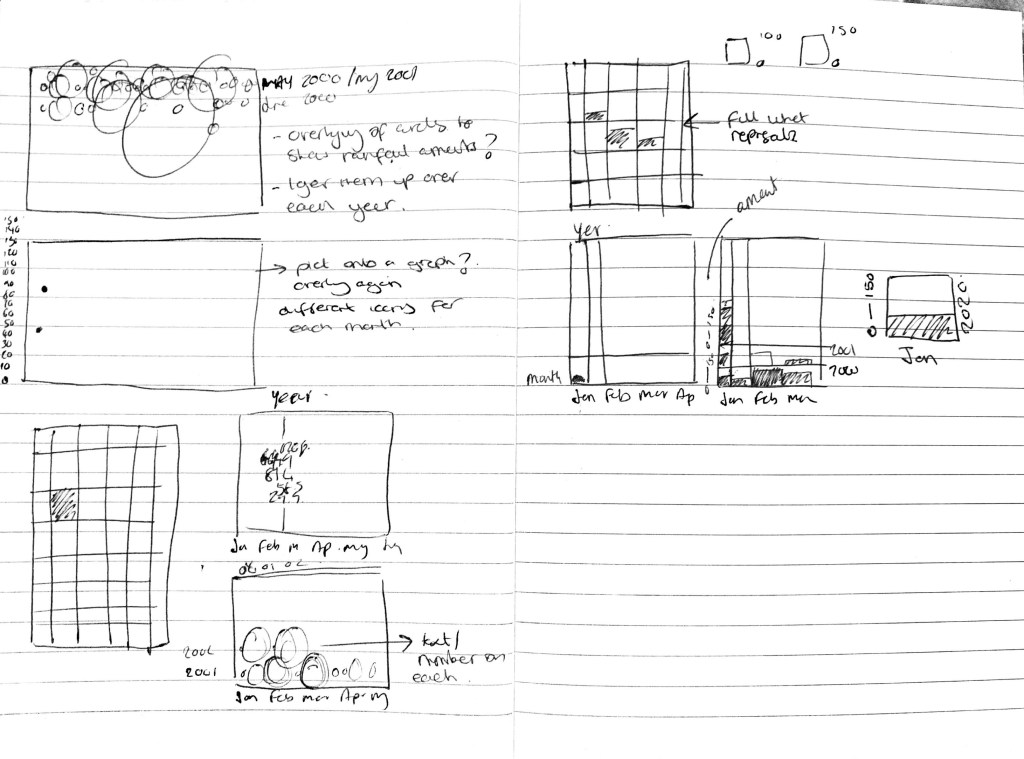 MAY 2000 / my 2001
2000
- overlying of circls to
show rainfall amonts?
- layer them up over
each year.
150
140
130
120
110
100
90
80
70
60
50
40
30
20
10
0
→ plot onto a graph?
overlay again
different icons for
each month.
year.
Jan Feb m Ap my
00 01 02
2002
2001
Jan Feb mar Ap my
text/
number on
each.
100
0
150
0
fill what
amont
yer.
month
Jan Feb mar Ap
0 — 150
0 — 150
2001
2000
Jan Feb mar
0 — 150
2020.
Jan